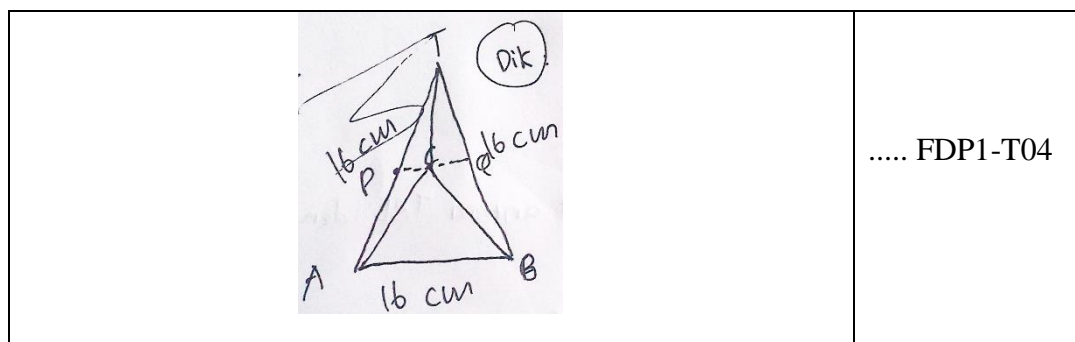 T
Dik
16 cm
16 cm
P
C
Q
A
B
16 cm
..... FDP1-T04